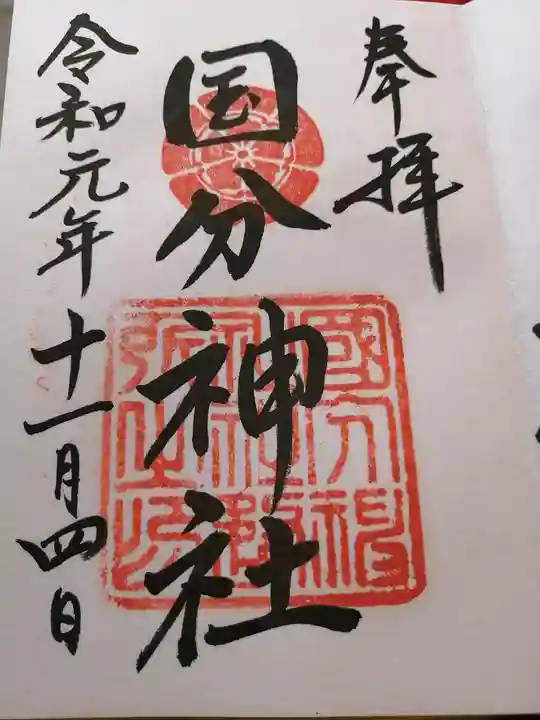 奉拝
国分神社
令和元年十一月四日